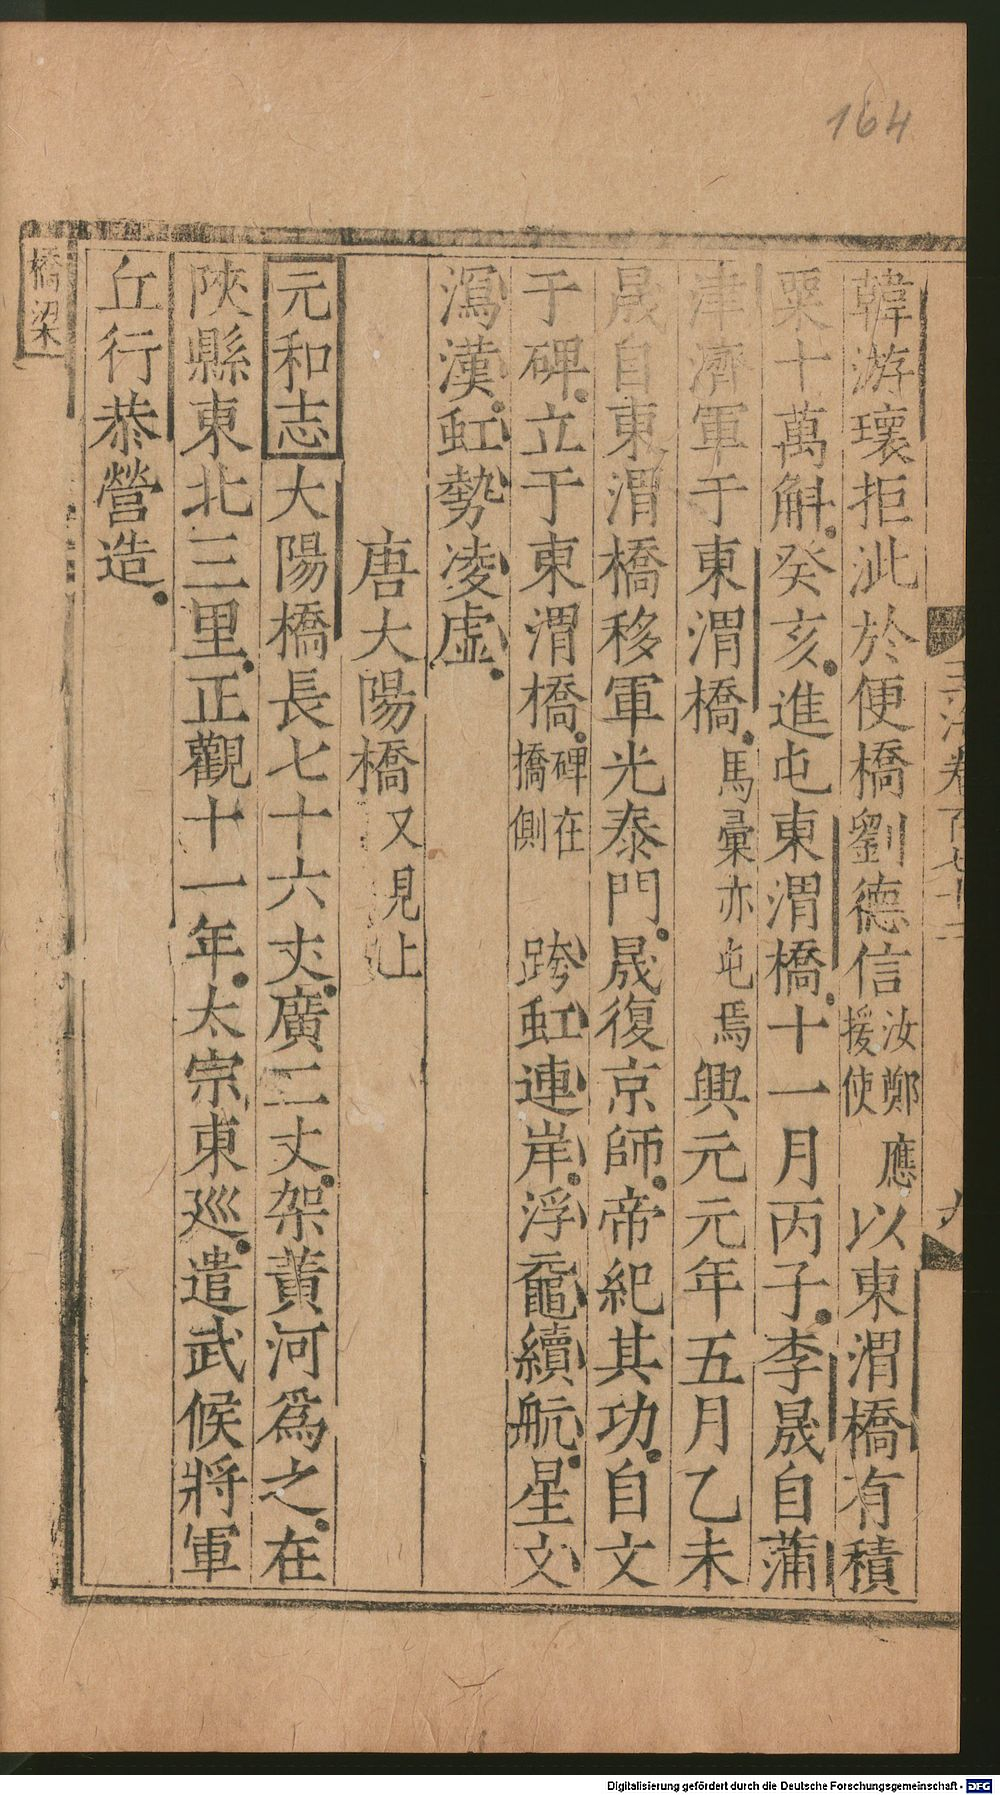 164
韓游瓌拒泚於便橋劉德信汝鄭應援使以東渭橋有積
粟十萬斛癸亥進屯東渭橋十一月丙子李晟自蒲
津濟軍于東渭橋馬彚亦屯焉興元元年五月乙未
晟自東渭橋移軍光泰門晟復京師帝紀其功自文
于碑立于東渭橋碑在橋側 跨虹連岸浮黿續航星文
瀉漢虹勢凌虛
唐大陽橋又見上
元和志大陽橋長七十六丈廣二丈架黃河爲之在
陝縣東北三里正觀十一年太宗東巡遣武候將軍
丘行恭營造
橋梁
Digitalisierung gefördert durch die Deutsche Forschungsgemeinschaft - DFG